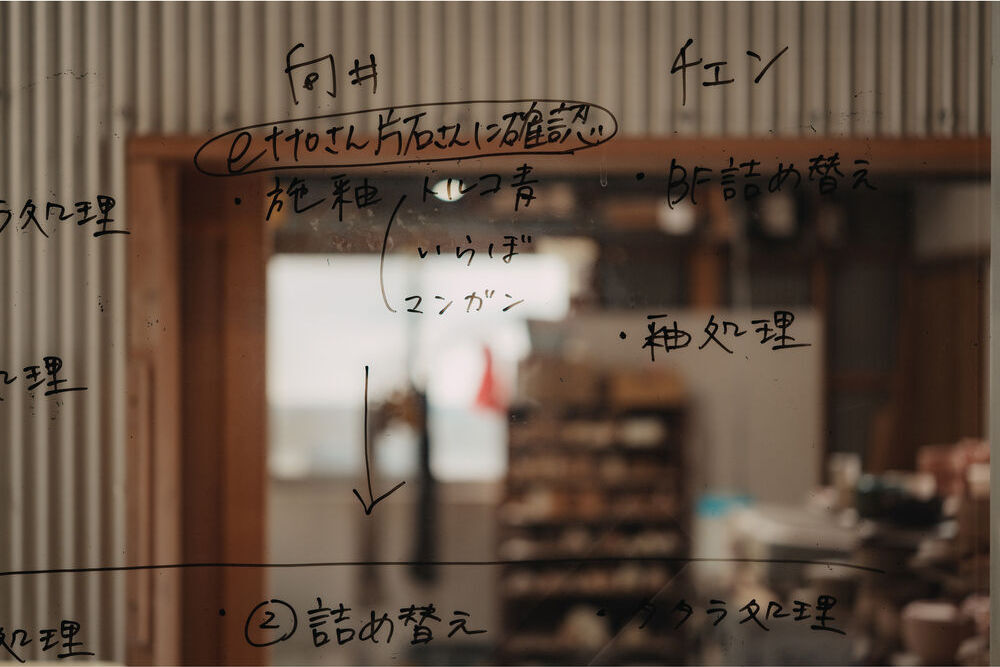 向井
ettoさん片石さんに確認
・施釉 トルコ青
いらぼ
マンガン
↓
② 詰め替え
チェン
・BF詰め替え
・釉処理
・タタラ処理
ラ処理
処理
処理